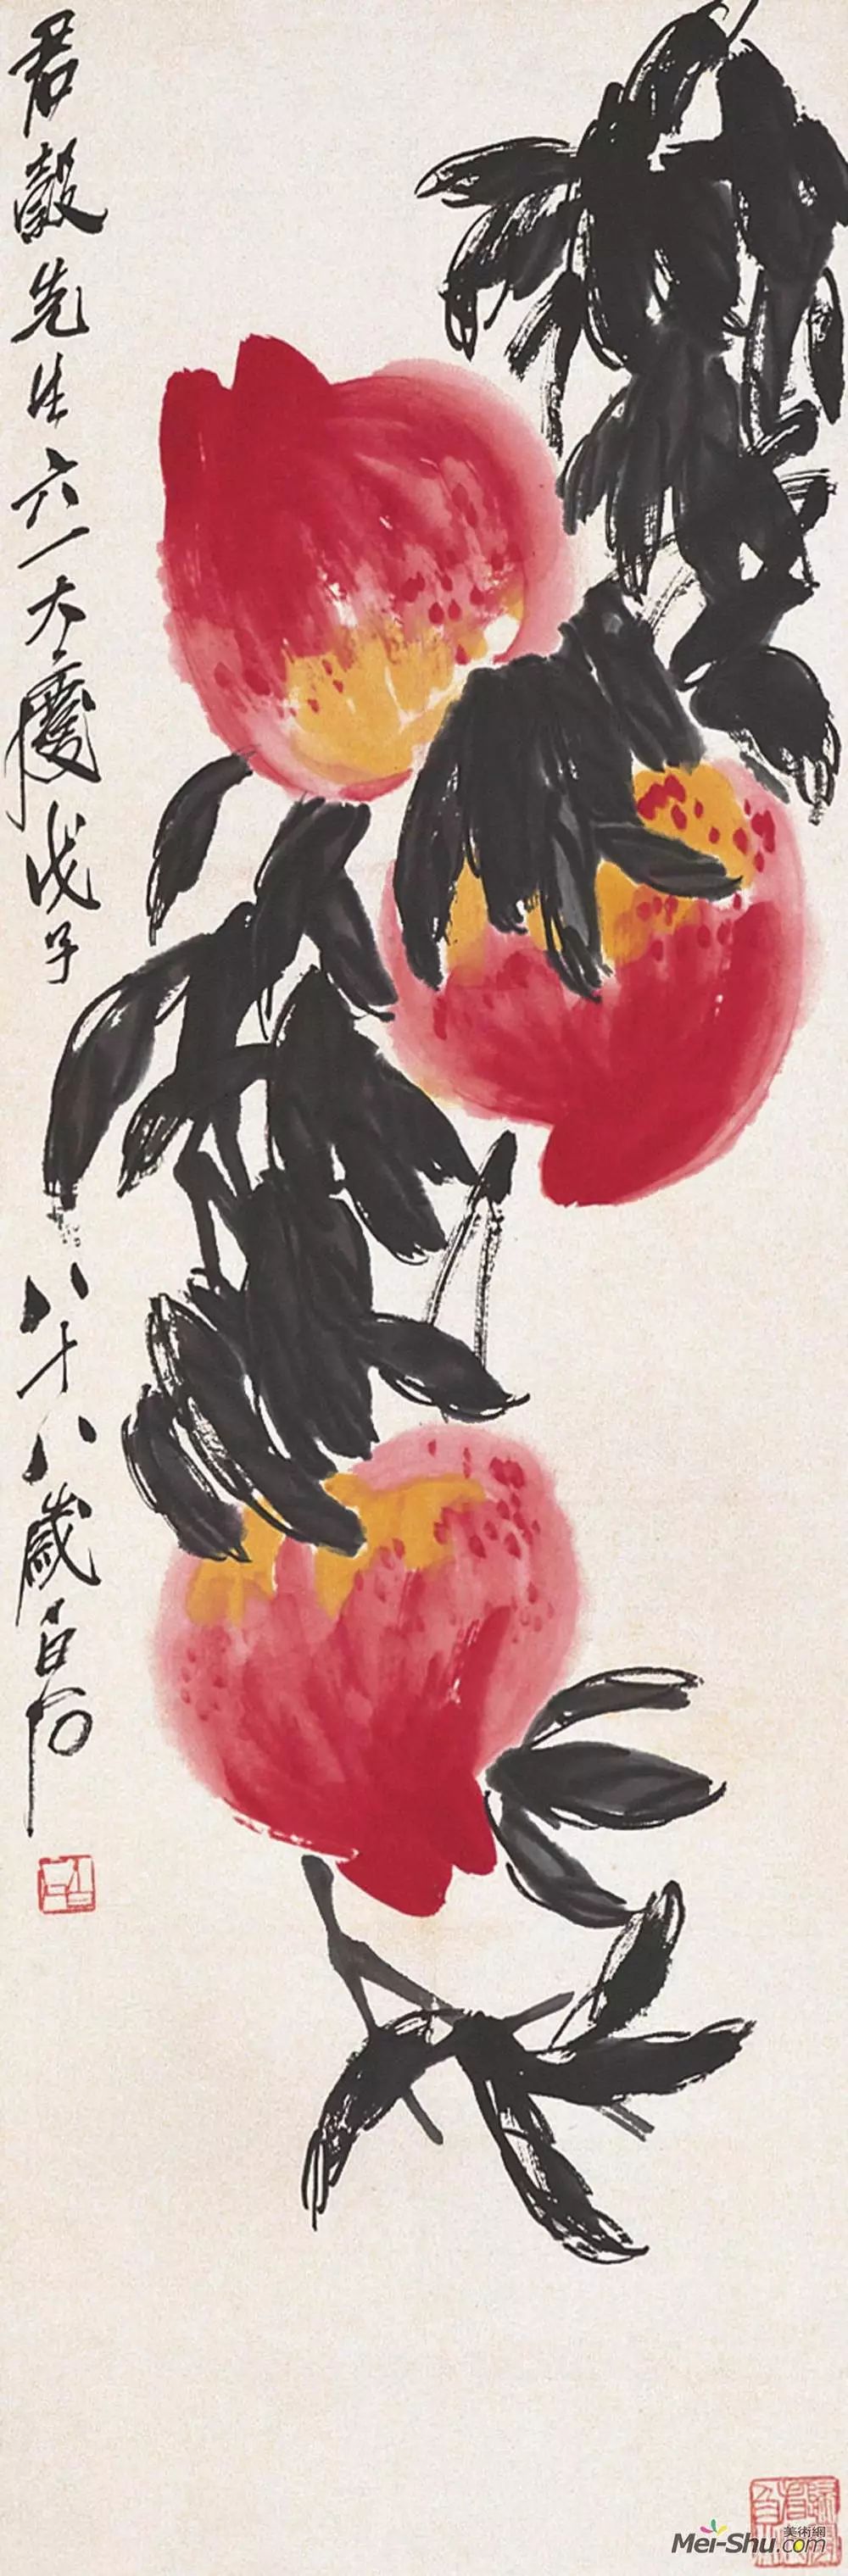 君縠先生六一大慶戊子
八十八歲白石
美術網
Mei-Shu.com